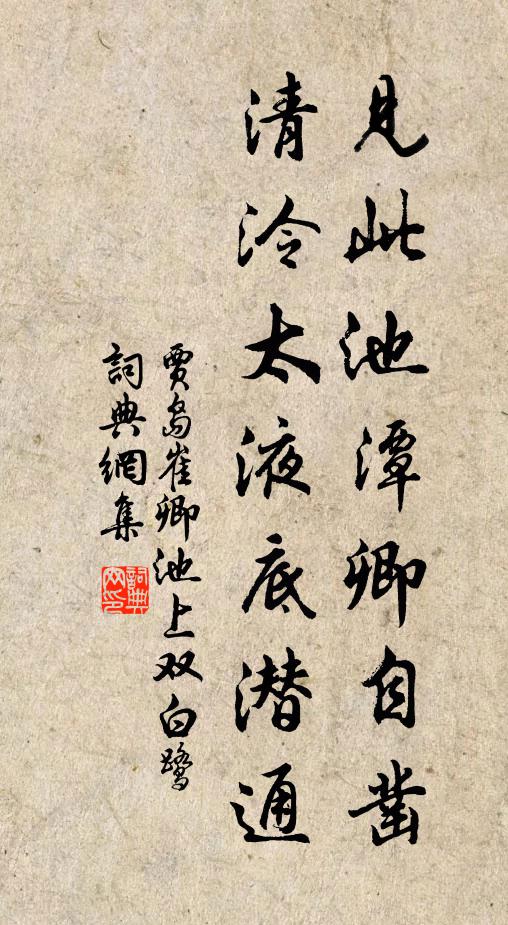 見此池潭卿自鑿
清泠太液底潜通
賈島崔卿池上双白鷺
詞典網集
詞典網印